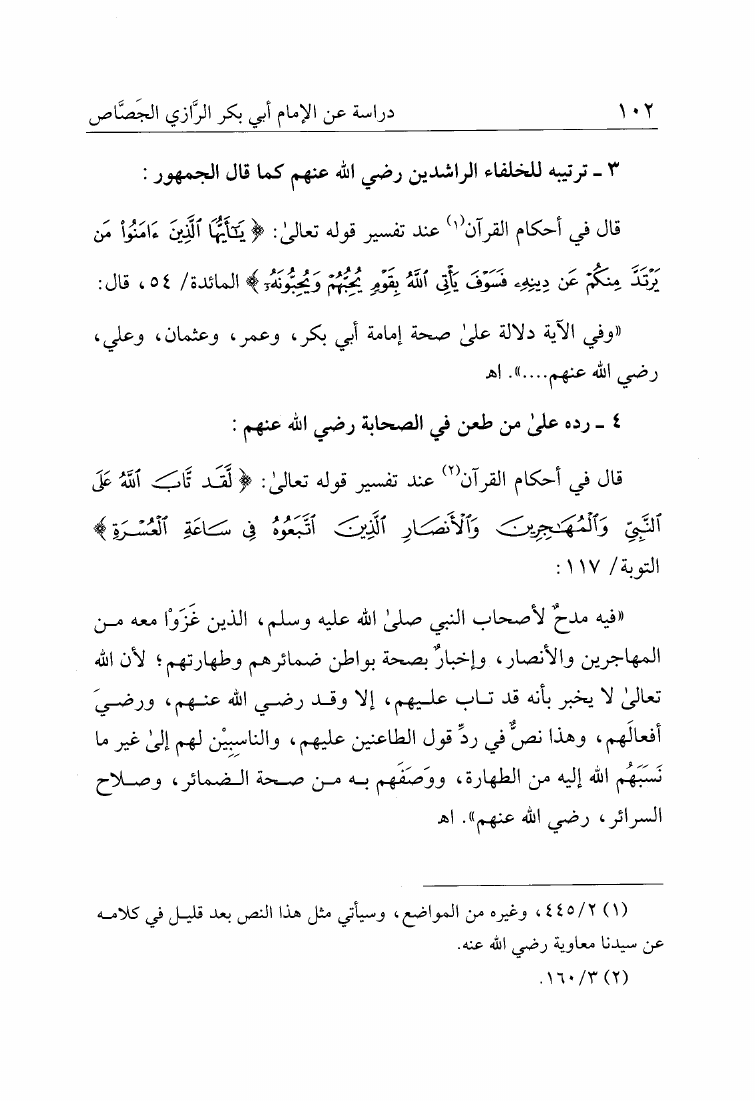 ١٠٢ دراسة عن الإمام أبي بكر الرَّازي الجَصَّاص
٣ ـ ترتيبه للخلفاء الراشدين رضي الله عنهم كما قال الجمهور :
قال في أحكام القرآن(١) عند تفسير قوله تعالىٰ: ﴿ يَـٰٓأَيُّهَا ٱلَّذِينَ ءَامَنُوا۟ مَن
يَرْتَدَّ مِنكُمْ عَن دِينِهِۦ فَسَوْفَ يَأْتِى ٱللَّهُ بِقَوْمٍ يُحِبُّهُمْ وَيُحِبُّونَهُۥٓ ﴾ المائدة/ ٥٤، قال:
«وفي الآية دلالة علىٰ صحة إمامة أبي بكر، وعمر، وعثمان، وعلي،
رضي الله عنهم....». اهـ
٤ ـ رده علىٰ من طعن في الصحابة رضي الله عنهم :
قال في أحكام القرآن(٢) عند تفسير قوله تعالىٰ: ﴿ لَّقَد تَّابَ ٱللَّهُ عَلَى
ٱلنَّبِىِّ وَٱلْمُهَـٰجِرِينَ وَٱلْأَنصَارِ ٱلَّذِينَ ٱتَّبَعُوهُ فِى سَاعَةِ ٱلْعُسْرَةِ ﴾
التوبة/ ١١٧ :
«فيه مدحٌ لأصحاب النبي صلىٰ الله عليه وسلم، الذين غَزَوْا معه مـن
المهاجرين والأنصار، وإخبارٌ بصحة بواطن ضمائرهم وطهارتهم؛ لأن الله
تعالىٰ لا يخبر بأنه قد تـاب علـيهم، إلا وقـد رضـي الله عنـهم، ورضـيَ
أفعالَهم، وهذا نصٌّ في ردِّ قول الطاعنين عليهم، والناسبِيْن لهم إلىٰ غير ما
نَسَبَهُم الله إليه من الطهارة، ووَصَفَهم بـه مـن صـحة الـضمائر، وصـلاح
السرائر، رضي الله عنهم». اهـ
(١) ٤٤٥/٢، وغيره من المواضع، وسيأتي مثل هذا النص بعد قليـل في كلامـه
عن سيدنا معاوية رضي الله عنه.
(٢) ١٦٠/٣.